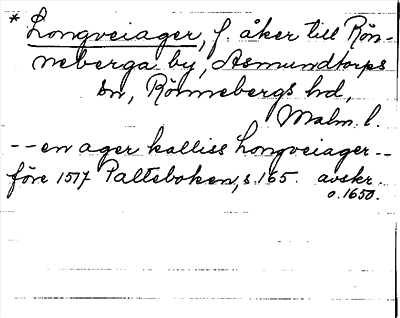 * Longveiager, f. åker till Rön-
neberga by, Asmundtorps
sn, Rönnebergs hd,
Malm. l.
-- en ager kalliss Longveiager --
före 1517 Palteboken, s. 165. avskr.
o. 1650.